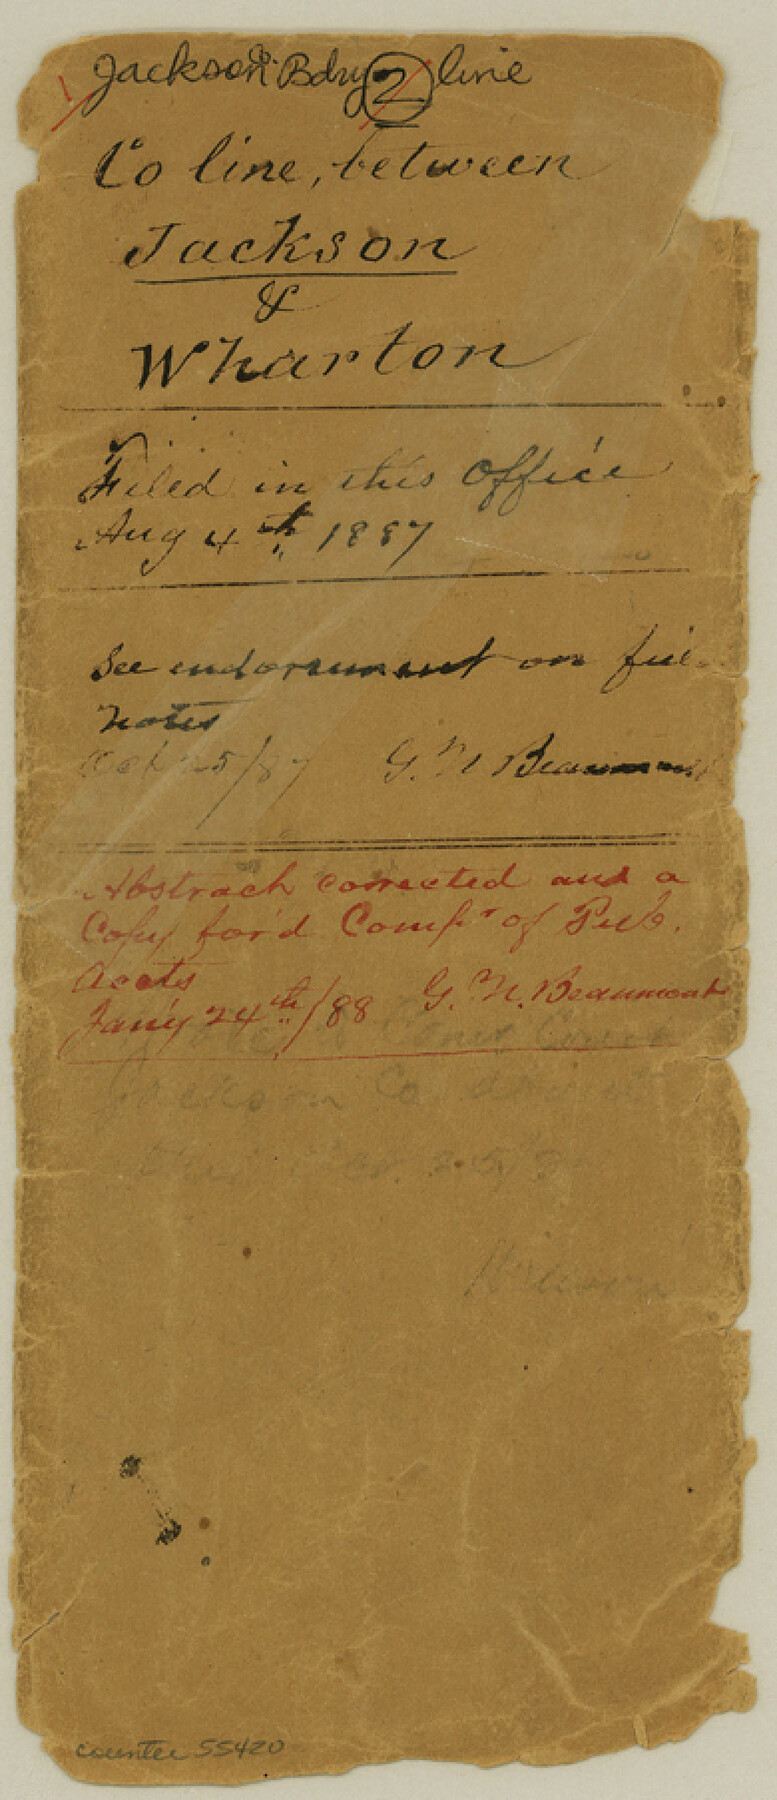 Jackson Bdry 2 line
Co line, between
Jackson
&
Wharton
Filed in this office
Aug 4th 1887
See endorsement on
notes
Oct 25/87 G. N. Beaumont
Abstrach corrected and a
Copy for'd Compr of Pub.
Accts
Jan'y 24th/88 G. N. Beaumont
Jackson Co
counter 55420